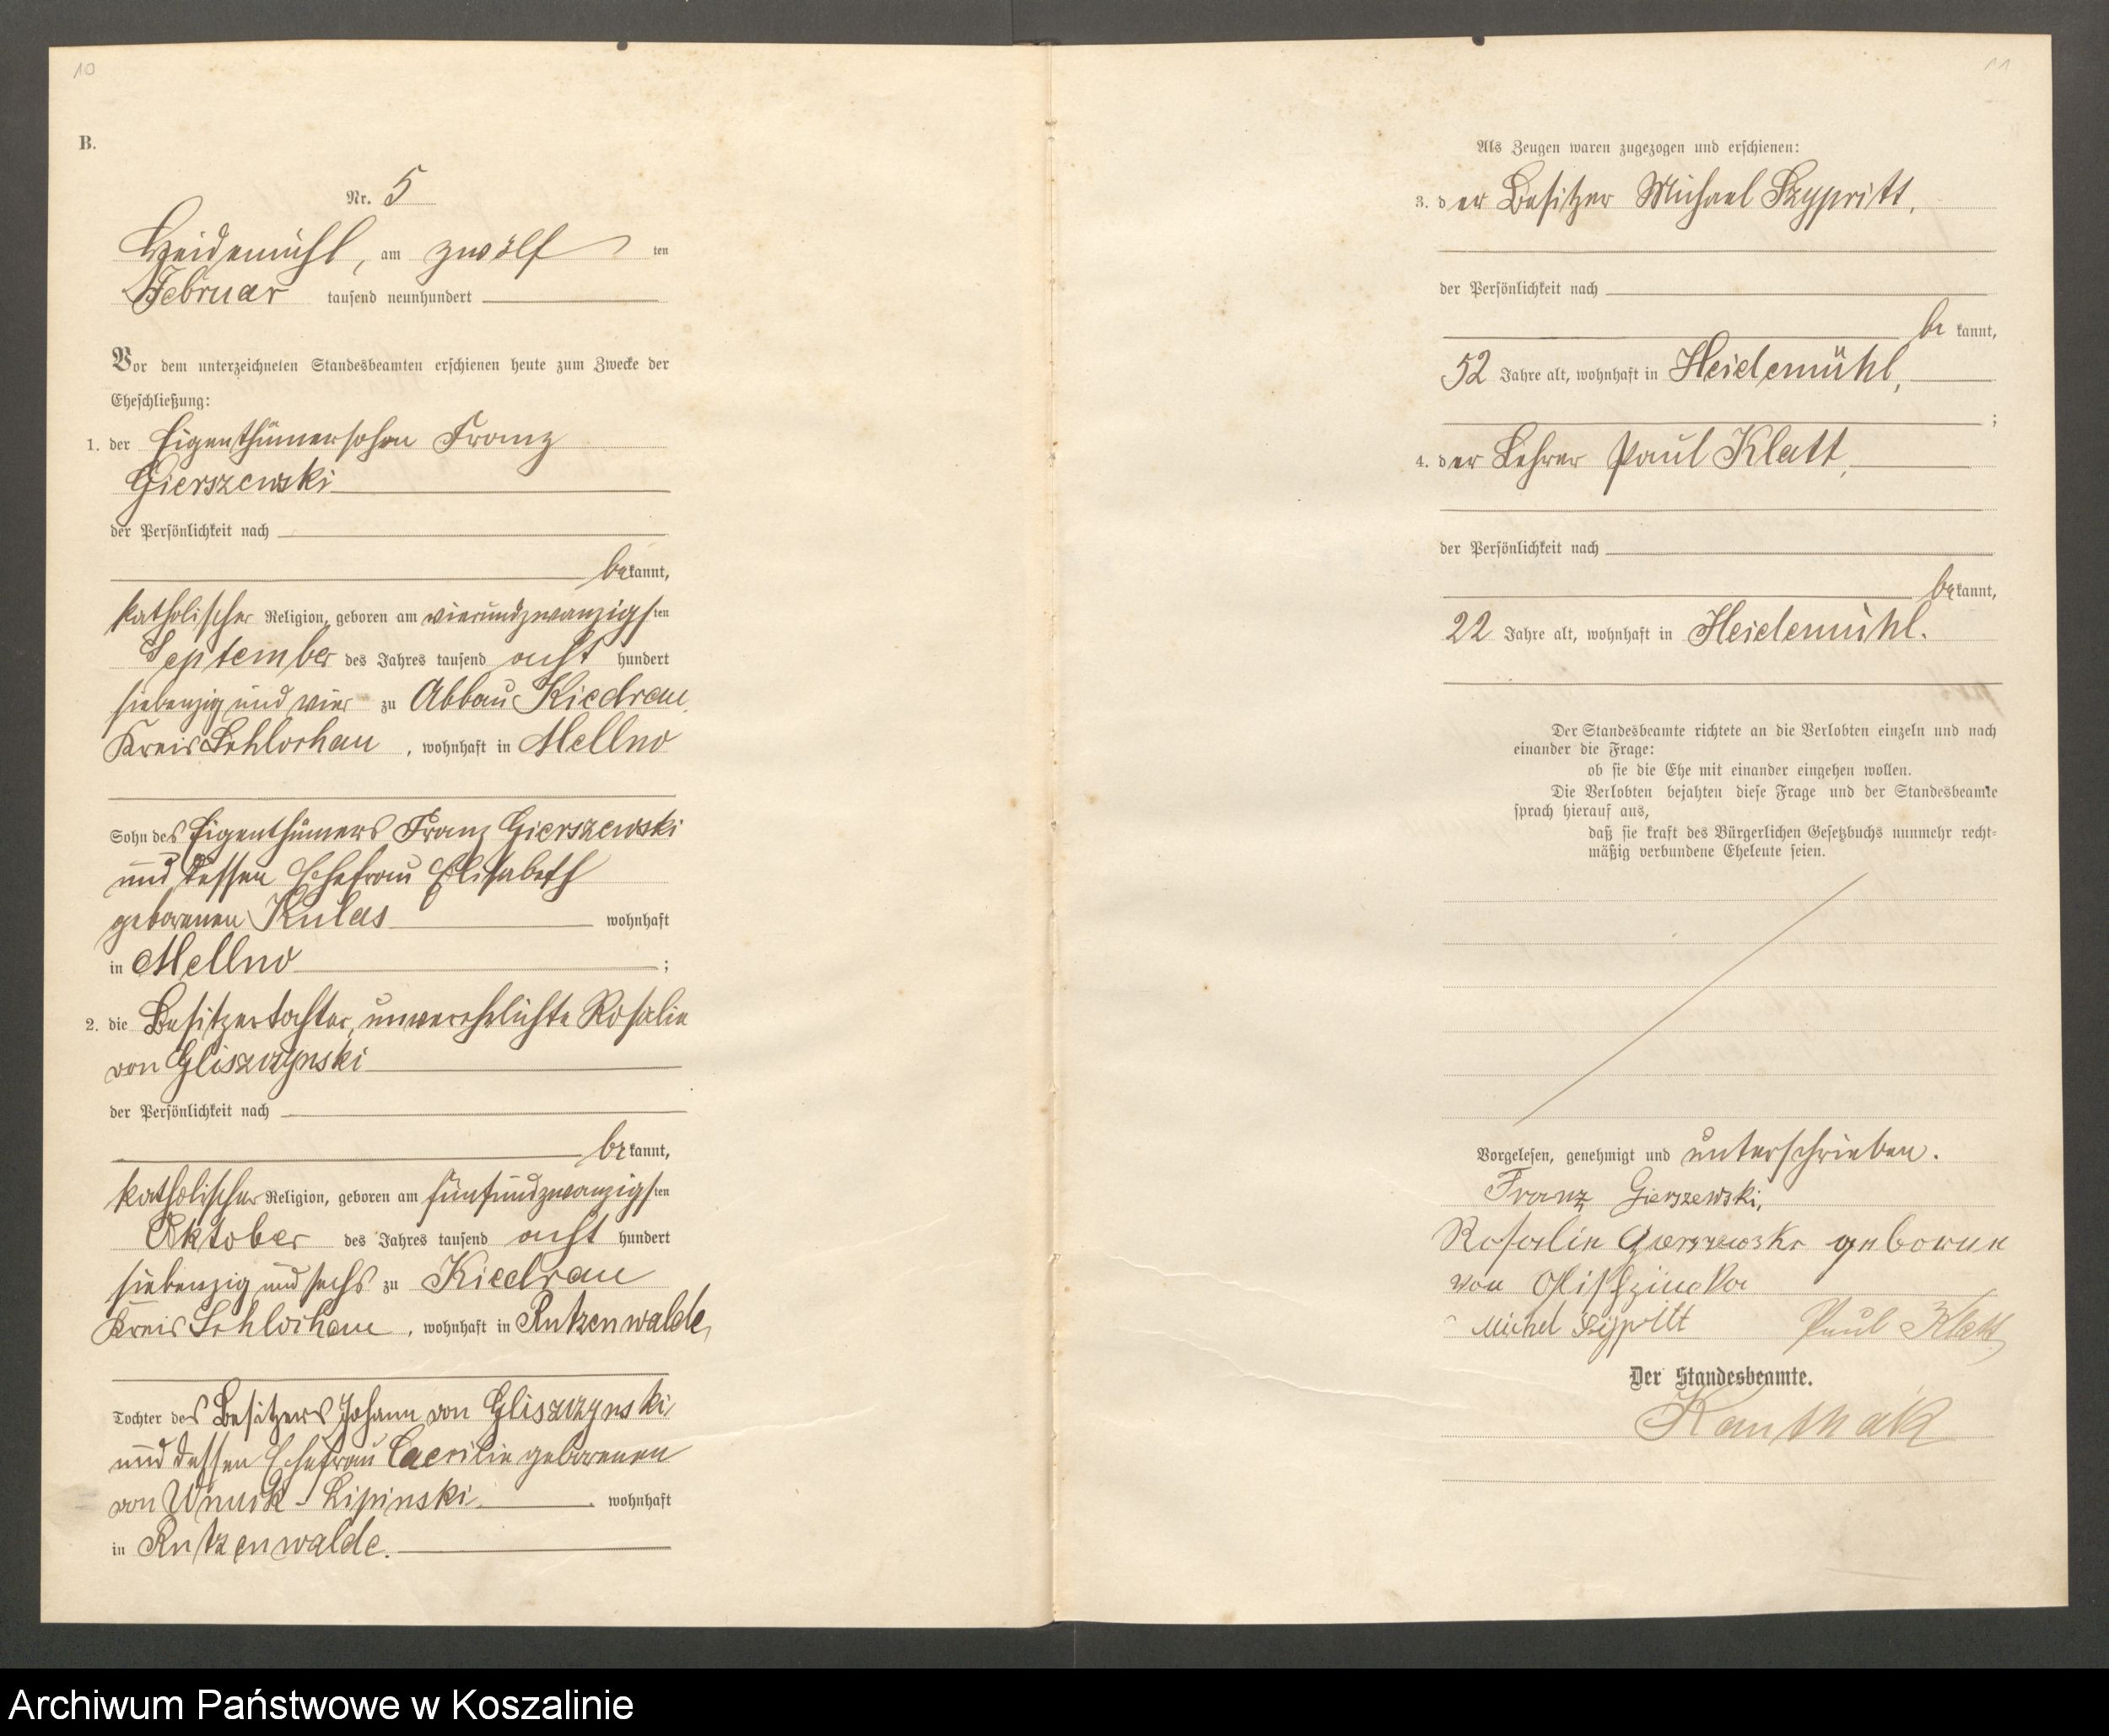 10
B.
Nr. 5
Heidemühl, am zwölf ten
Februar tausend neunhundert
Vor dem unterzeichneten Standesbeamten erschienen heute zum Zwecke der
Eheschließung:
1. der Eigenthümersohn Franz
Gierszewski
der Persönlichkeit nach
bekannt,
katholischer Religion, geboren am vierundzwanzigsten
September des Jahres tausend acht hundert
siebenzig und vier zu Abbau Kiedrau
Kreis Schlochau, wohnhaft in Mellno
Sohn des Eigenthümers Franz Gierszewski
und dessen Ehefrau Elisabeth
geborenen Kulas wohnhaft
in Mellno ;
2. die Besitzertochter, unverehelichte Rosalie
von Gliszczynski
der Persönlichkeit nach
bekannt,
katholischer Religion, geboren am fünfundzwanzigsten
Oktober des Jahres tausend acht hundert
siebenzig und sechs zu Kiedrau
Kreis Schlochau, wohnhaft in Rutzenwalde,
Tochter des Besitzers Johann von Gliszczynski
und dessen Ehefrau Caecilie geborenen
von Wnuck-Lipinski wohnhaft
in Rutzenwalde.
11
Als Zeugen waren zugezogen und erschienen:
3. der Besitzer Michael Szypritt,
der Persönlichkeit nach
bekannt,
52 Jahre alt, wohnhaft in Heidemühl,
;
4. der Lehrer Paul Klatt,
der Persönlichkeit nach
bekannt,
22 Jahre alt, wohnhaft in Heidemühl.
Der Standesbeamte richtete an die Verlobten einzeln und nach
einander die Frage:
ob sie die Ehe mit einander eingehen wollen.
Die Verlobten bejahten diese Frage und der Standesbeamte
sprach hierauf aus,
daß sie kraft des Bürgerlichen Gesetzbuchs nunmehr recht=
mäßig verbundene Eheleute seien.
Vorgelesen, genehmigt und unterschrieben.
Franz Gierszewski,
Rosalie Gierszewski geborene
von
Michel Paul Klatt
Der Standesbeamte.
Kanthak
Archiwum Państwowe w Koszalinie